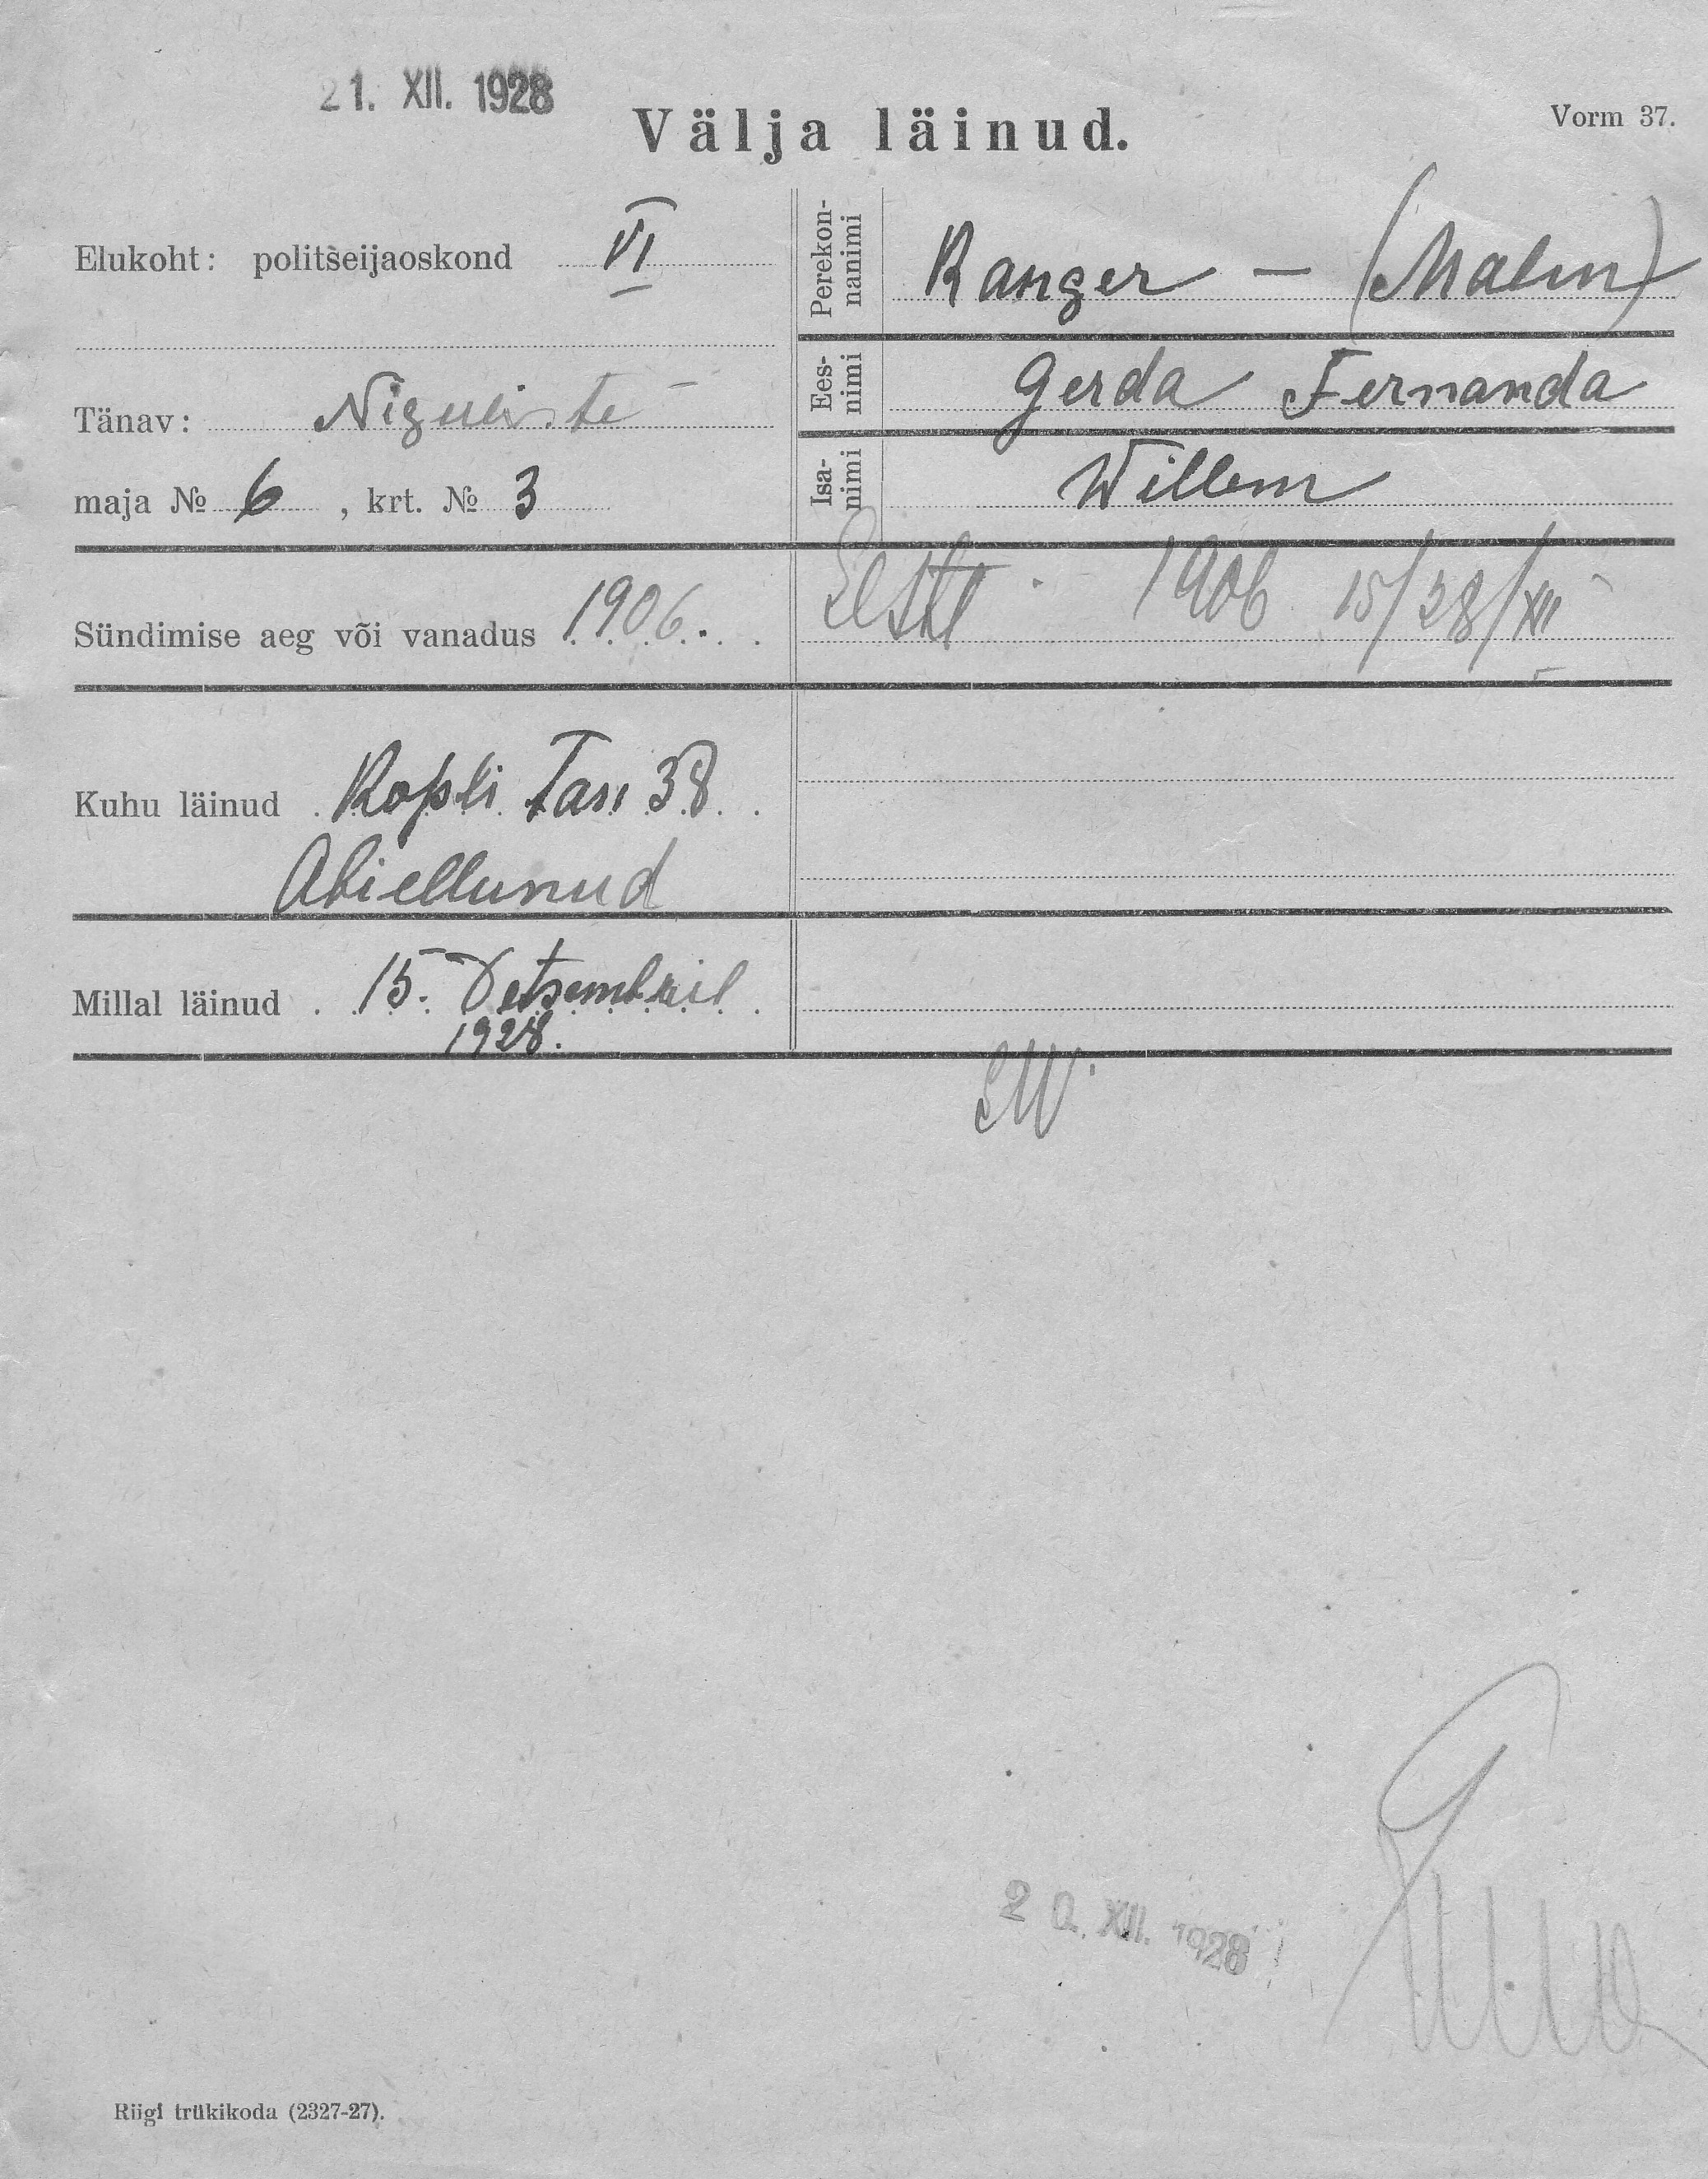 21. XII. 1928
Välja läinud.
Vorm 37.
Elukoht: politseijaoskond VI
Tänav: Niguliste
maja № 6, krt. № 3
Perekon-
nanimi
Ranger - (Malm)
Ees-
nimi
Gerda Fernanda
Isa-
nimi
Willem
Sündimise aeg või vanadus 1906.
Eesti 1906 15/28/XII
Kuhu läinud Kopli Tän 38
Abiellunud
Millal läinud 15. Detsembril
1928.
20. XII. 1928
Riigi trükikoda (2327-27).